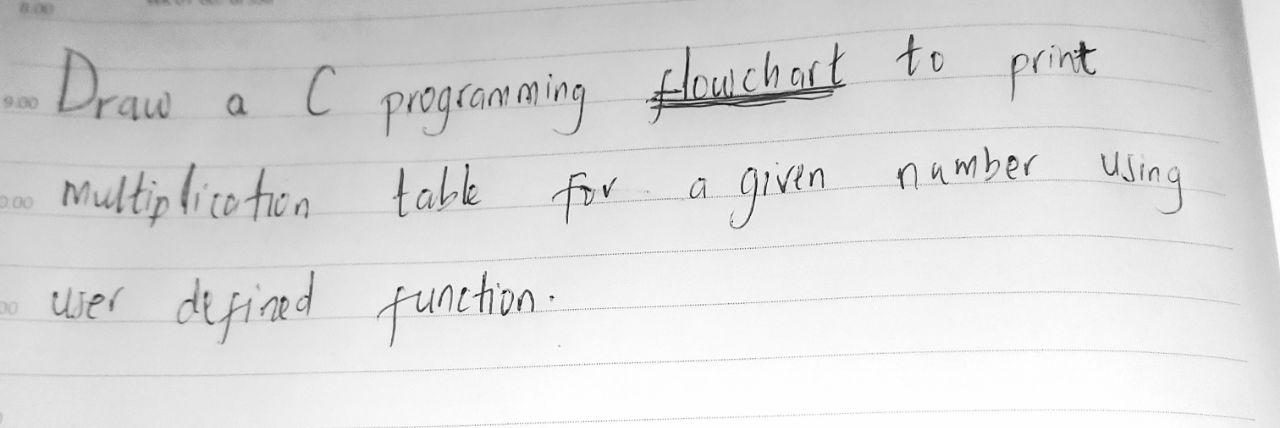 8.00
9.00 Draw a C programming flowchart to print
multiplication table for a given number using
user defined function.